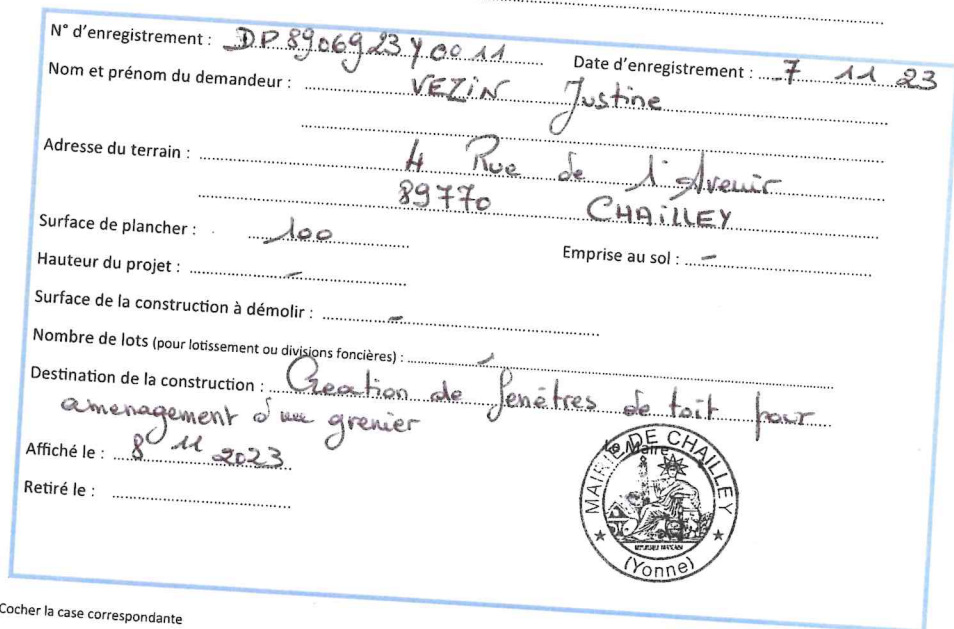 N° d'enregistrement : DP 8906923Y0011 Date d'enregistrement : 7 11 23
Nom et prénom du demandeur : VEZIN Justine
Adresse du terrain : 4 Rue de l'Avenir
89770 CHAILLEY
Surface de plancher : 100 Emprise au sol : -
Hauteur du projet : -
Surface de la construction à démolir : -
Nombre de lots (pour lotissement ou divisions foncières) : -
Destination de la construction : Creation de fenêtres de toit pour
amenagement d'un grenier
Affiché le : 8 11 2023
Retiré le :
Le Maire
MAIRIE DE CHAILLEY
REPUBLIQUE FRANCAISE
(Yonne)
Cocher la case correspondante